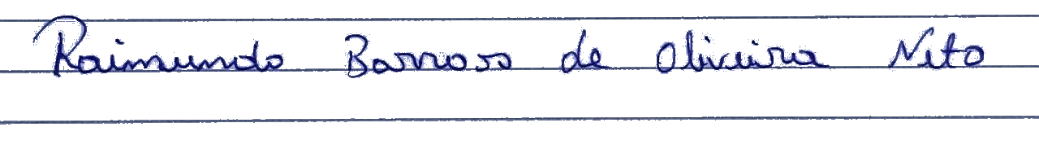 Raimundo Barroso de Oliveira Neto